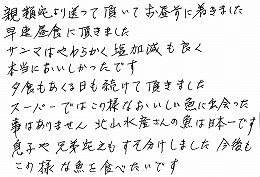 親類宅より送って頂いてお昼前に着きました
早速昼食に頂きました
サンマはやわらかく塩加減も良く
本当においしかったです
夕食もあくる日も続けて頂きました
スーパーではこの様なおいしい魚に出会った
事はありません 北山水産さんの魚は日本一です
息子や兄弟宅ともすそ分けしました 今後も
この様な魚を食べたいです